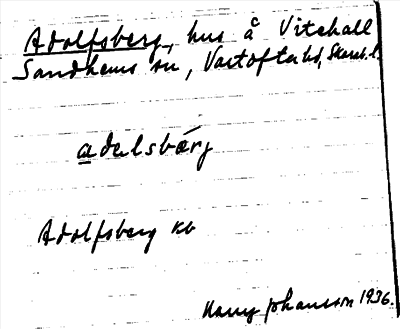 Adolfsberg, hus å Vitehall
Sandhems sn, Vartofta hd, Skarab. l.
adelsbærj
Adolfsberg kb
Harry Johansson 1936.